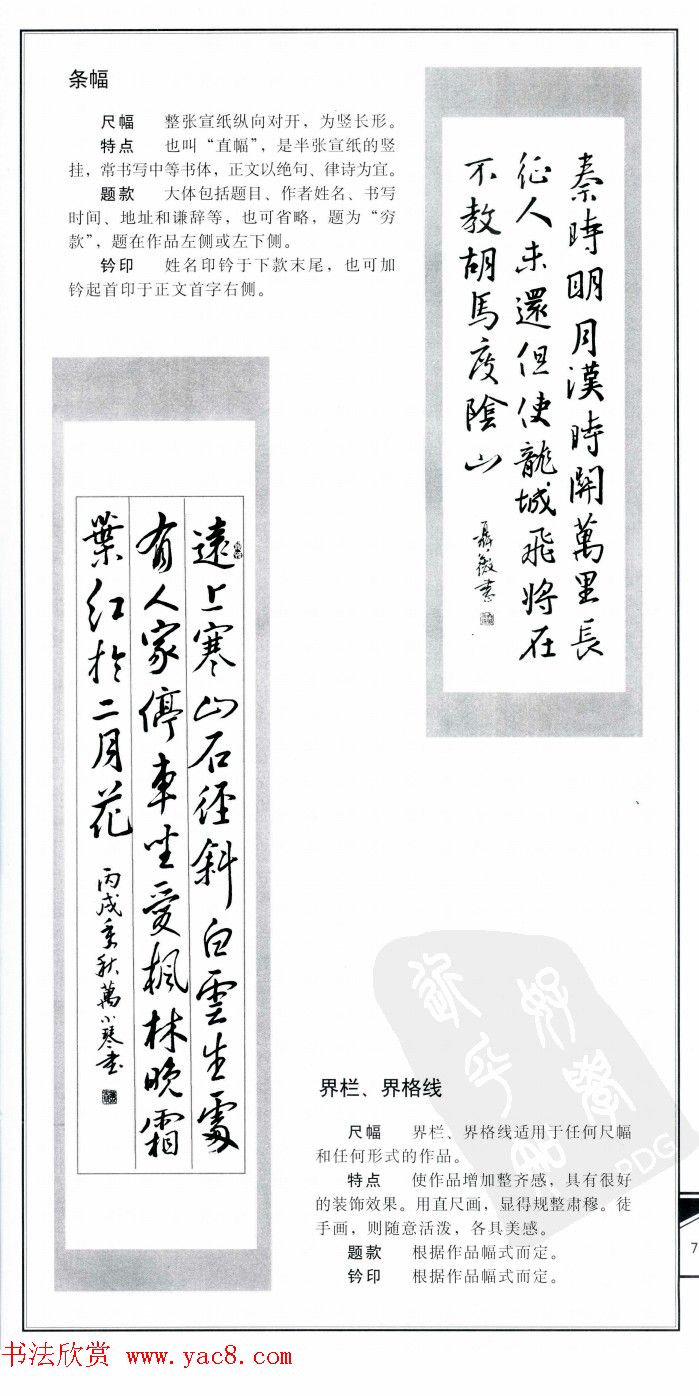 条幅
尺幅 整张宣纸纵向对开，为竖长形。
特点 也叫“直幅”，是半张宣纸的竖
挂，常书写中等书体，正文以绝句、律诗为宜。
题款 大体包括题目、作者姓名、书写
时间、地址和谦辞等，也可省略，题为“穷
款”，题在作品左侧或左下侧。
钤印 姓名印钤于下款末尾，也可加
钤起首印于正文首字右侧。
秦時明月漢時關萬里長
征人未還但使龍城飛將在
不教胡馬度陰山
聶薇書
遠上寒山石徑斜白雲生處
有人家停車坐愛楓林晚霜
葉紅於二月花
丙戌季秋萬小琴書
界栏、界格线
尺幅 界栏、界格线适用于任何尺幅
和任何形式的作品。
特点 使作品增加整齐感，具有很好
的装饰效果。用直尺画，显得规整肃穆。徒
手画，则随意活泼，各具美感。
题款 根据作品幅式而定。
钤印 根据作品幅式而定。
PDG
7
书法欣赏 www.yac8.com